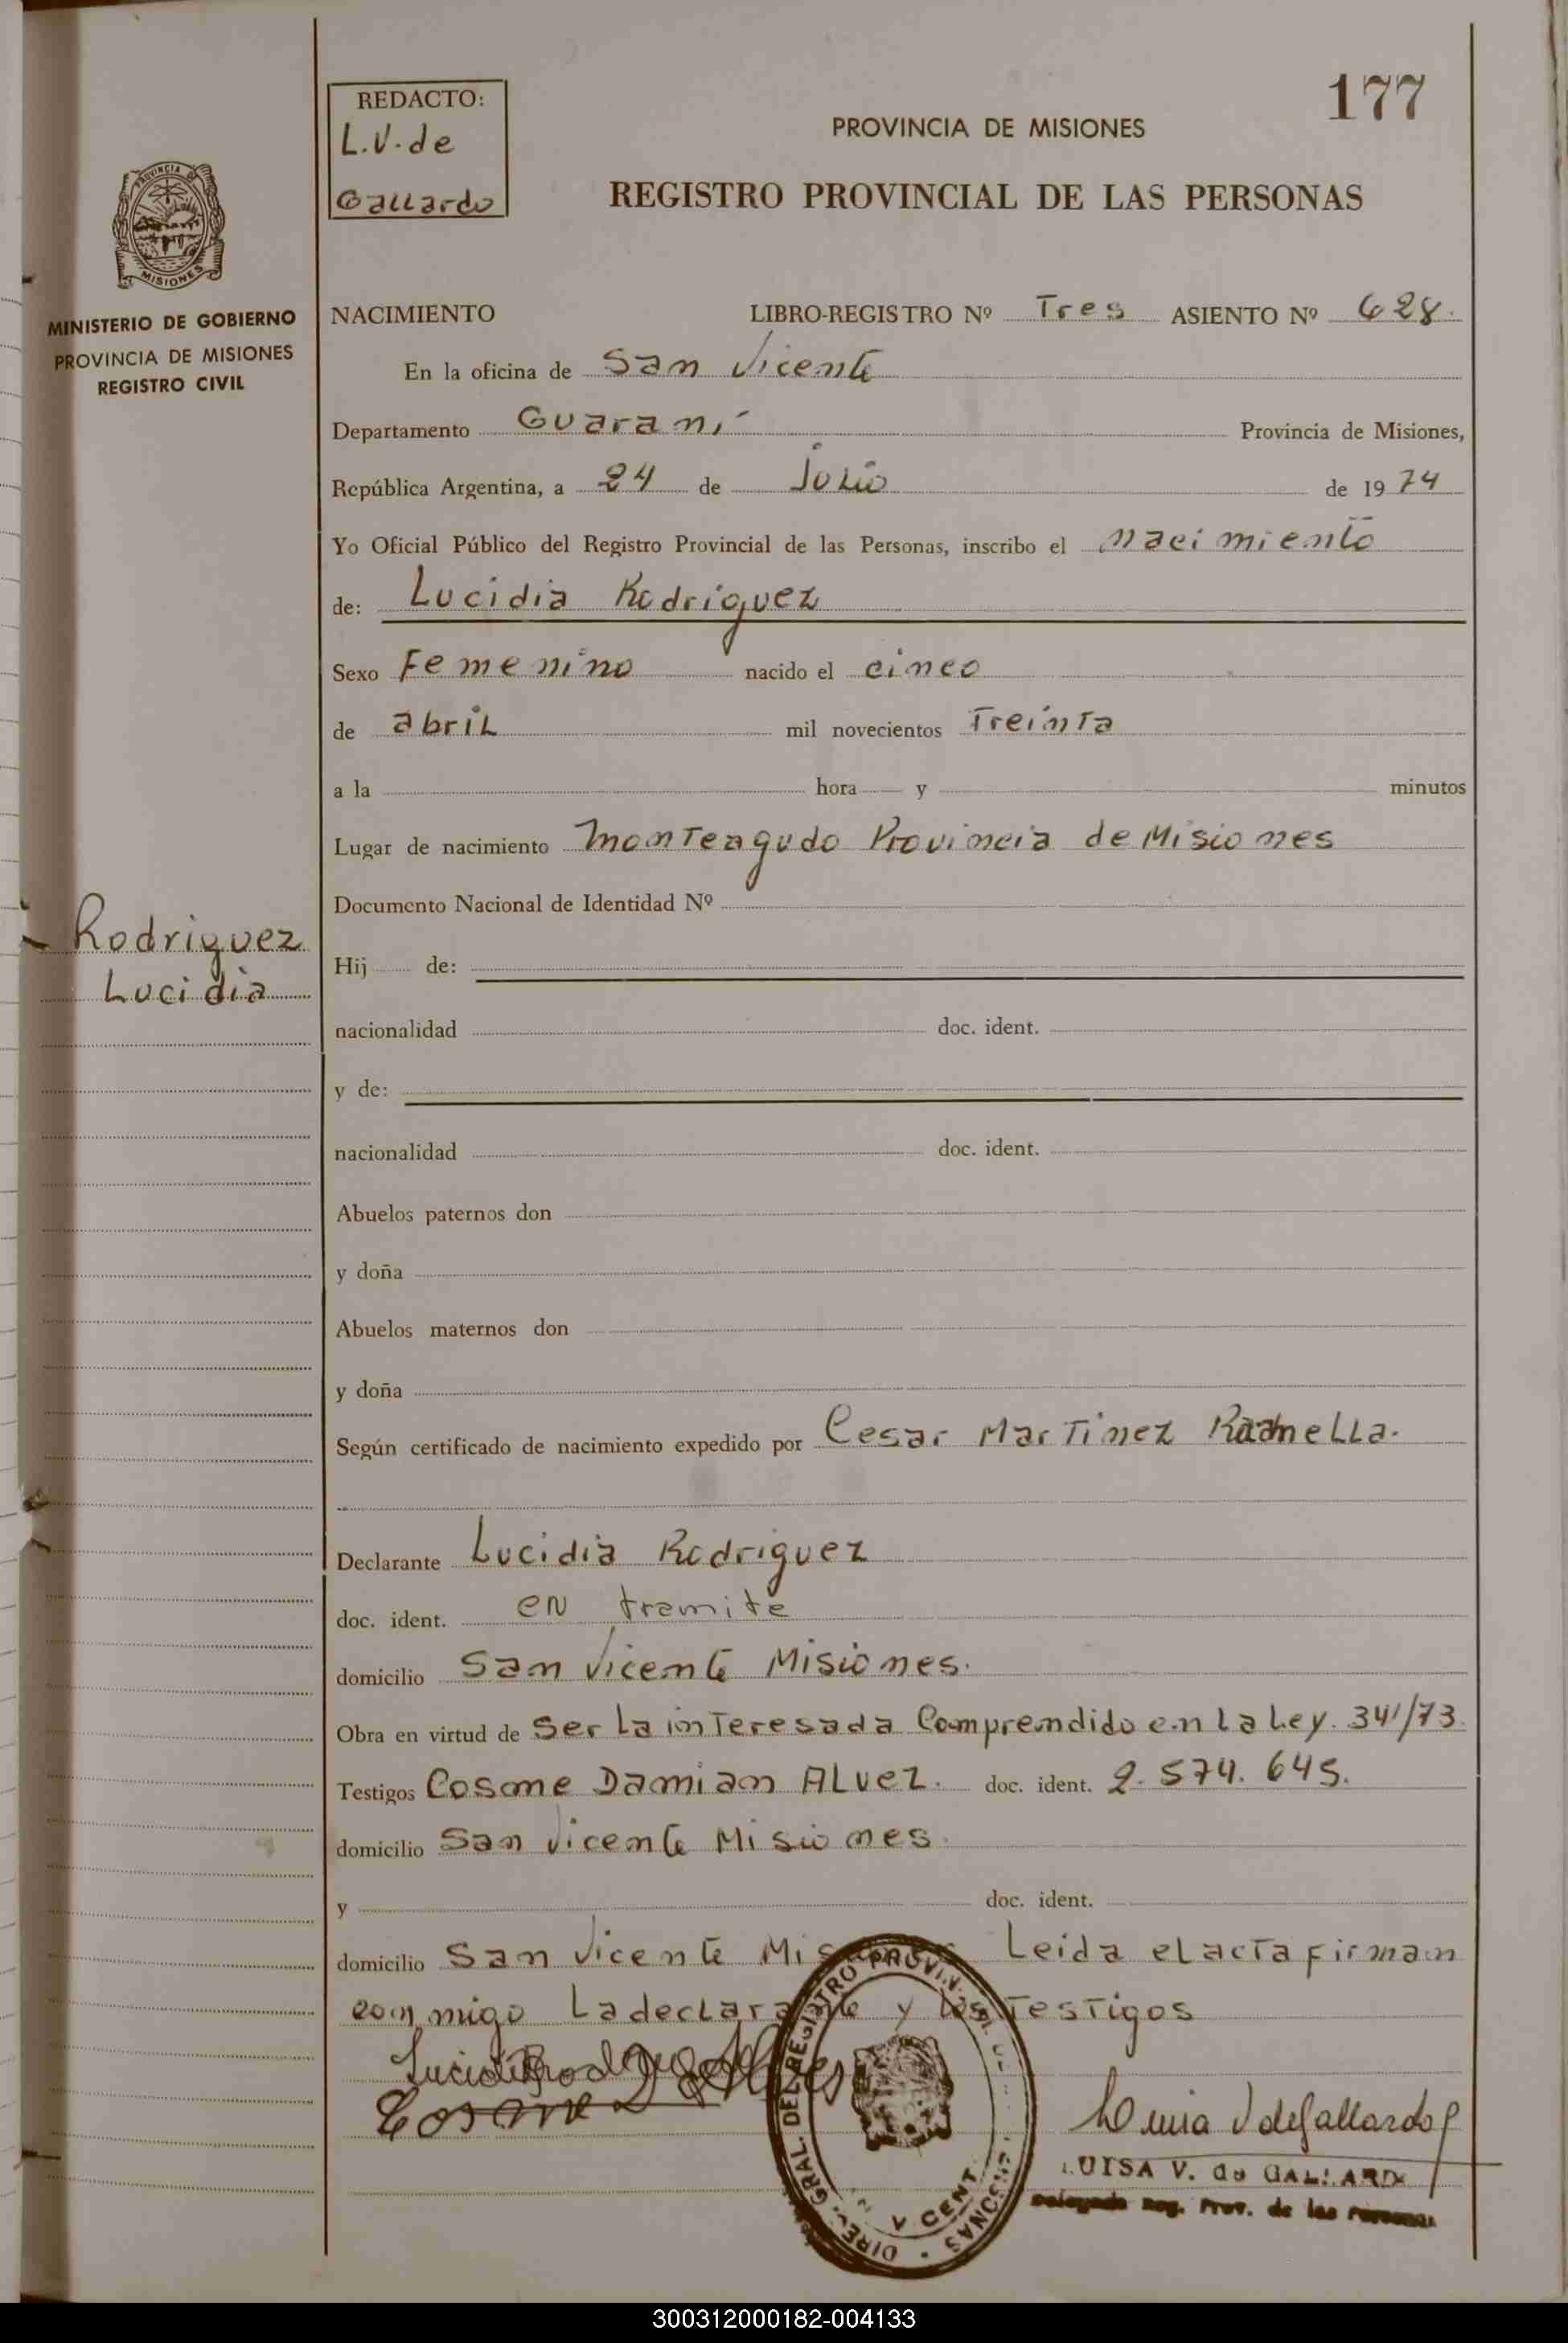 177
REDACTO:
L.V. de
Gallardo
PROVINCIA DE MISIONES
REGISTRO PROVINCIAL DE LAS PERSONAS
PROVINCIA DE
MISIONES
MINISTERIO DE GOBIERNO
PROVINCIA DE MISIONES
REGISTRO CIVIL
NACIMIENTO LIBRO-REGISTRO Nº Tres ASIENTO Nº 628.
En la oficina de San Vicente
Departamento Guaraní Provincia de Misiones,
República Argentina, a 24 de Julio de 1974
Yo Oficial Público del Registro Provincial de las Personas, inscribo el nacimiento
de: Lucidia Rodriguez
Sexo Femenino nacido el cinco
de abril mil novecientos Treinta
a la hora y minutos
Lugar de nacimiento Monteagudo Provincia de Misiones
Documento Nacional de Identidad Nº
Rodriguez
Lucidia
Hij de:
nacionalidad doc. ident.
y de:
nacionalidad doc. ident.
Abuelos paternos don
y doña
Abuelos maternos don
y doña
Según certificado de nacimiento expedido por Cesar Martinez
Declarante Lucidia Rodriguez
doc. ident. en tramite
domicilio San Vicente Misiones.
Obra en virtud de Ser La interesada Comprendido en La Ley. 341/73
Testigos Cosme Damian Alvez. doc. ident. 2.574.645.
domicilio San Vicente Misiones.
y doc. ident.
domicilio San Vicente Misiones Leida el acta firman
conmigo La declarante y los Testigos
Cosme D Alves
DIREC. GRAL. DEL REGISTRO PROVINCIAL PERSONAS
Luisa V de Gallardo
LUISA V. de GALLARDO
Delegada Reg. Prov. de las Personas
300312000182-004133